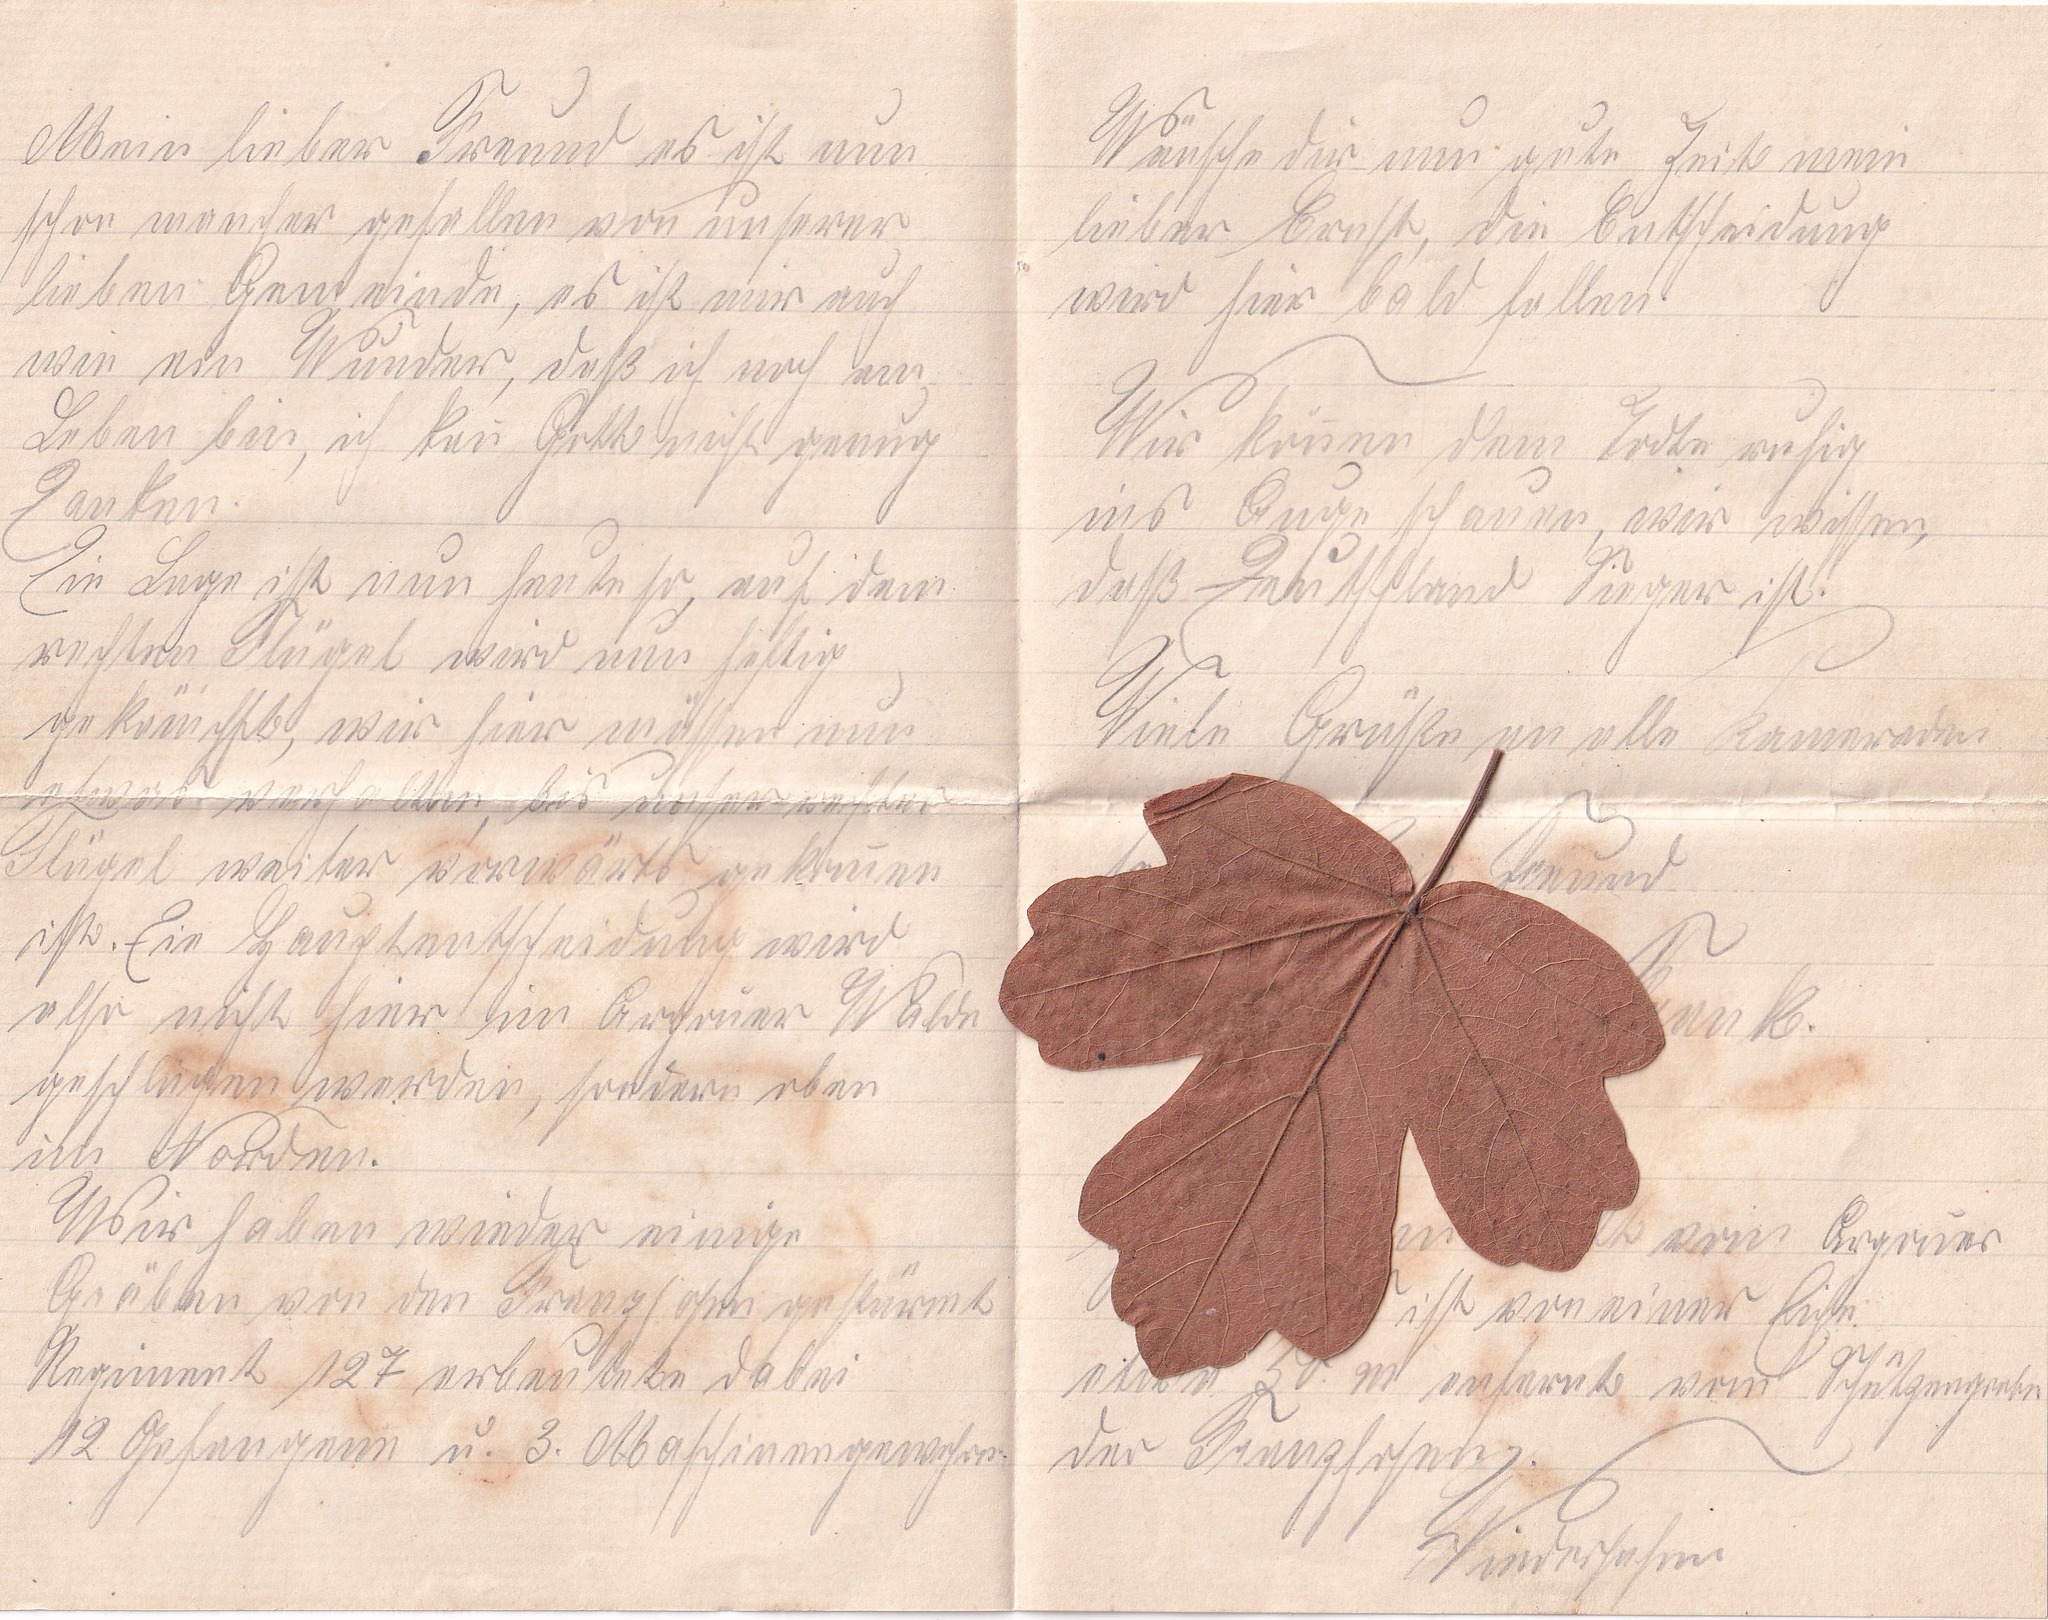 Mein lieber Freund es ist nun
schon mancher gefallen von unserer
lieben Gemeinde, es ist mir auch
wie ein Wunder, daß ich noch am
Leben bin, ich kan̄ Gott nicht genug
Danken.
Die Lage ist nun heute so, auf dem
rechten Flügel wird nun heftig
gekämpft, wir hier müssen nun
etwas verhalten, bis unser rechter
Flügel weiter vorwärts gekom̄en
ist. Die Hauptentscheidung wird
also nicht hier im Argon̄er Walde
geschlagen werden, sondern oben
im Norden.
Wir haben wieder einige
Gräben von den Franzhosen gestürmt
Regiment 127 erbeutete dabei
12 Gefangene u. 3. Maschinengewehre.
Wünsche dir nun gute Zeit mein
lieber Ernst, die Entscheidung
wird hier bald fallen
Wir kön̄en dem Todte ruhig
ins Auge schauen, wir wissen,
daß Deutschland Sieger ist.
Viele Grüße an alle Kameraden
Freund
vom Argon̄er
ist von einer Eiche
etwa 50. m enfernt vom Schützengraben
der Franzhosen.
Wiedersehen